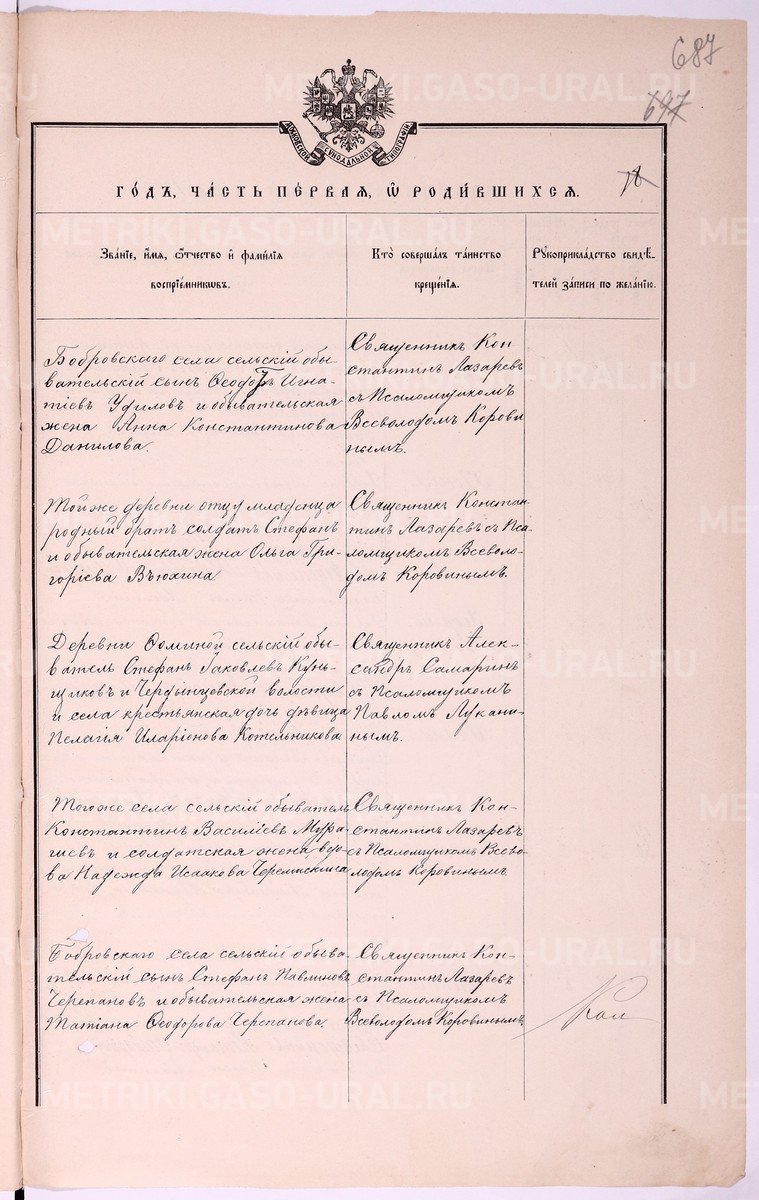 687
697
МОСКОВСКОЙ СѴНОДАЛЬНОЙ ТИПОГРАФІИ
ГО́ДЪ, ЧА́СТЬ ПЕ́РВАЯ, Ѽ РОДИ́ВШИХСЯ.
Зва́ніе, и҆́мя, ѻ҆́тчество и҆ фами́лія
воспріе́мникѡвъ.
Кто̀ соверша́лъ та́инство
креще́нія.
Рꙋкоприкла́дство свидѣ́-
телей за́писи по жела́нію.
Бобровскаго села сельскій обы-
вательскій сынъ Ѳеодоръ Игна-
тіевъ Удиловъ и обывательская
жена Анна Константинова
Данилова.
Священникъ Кон
стантинъ Лазаревъ
съ Псаломщикомъ
Всеволодомъ Корови
нымъ.
Той же деревни отцу младенца
родный братъ солдатъ Стефанъ
и обывательская жена Ольга Гри-
горіева Вьюхина
Священникъ Констан-
тинъ Лазаревъ съ Пса-
ломщикомъ Всеволо-
домъ Коровинымъ.
Деревни Ѳоминой сельскій обы-
ватель Стефанъ Іаковлевъ Кунь-
щиковъ и Чердынцовской волости
и села крестьянская дочь дѣвица
Пелагія Иларіонова Котельникова
Священникъ Алек-
сандръ Самаринъ
съ Псаломщикомъ
Павломъ Лукани-
нымъ.
Того же села сельскій обыватель
Константинъ Василіевъ Мура-
шевъ и солдатская жена вдо-
ва Надежда Исаакова Черемисина
Священникъ Кон-
стантинъ Лазаревъ
съ Псаломщикомъ Всево-
лодомъ Коровинымъ
Бобровскаго села сельскій обыва-
тельскій сынъ Стефанъ Павлиновъ
Черепановъ и обывательская жена
Татіана Ѳеодорова Черепанова.
Священникъ Кон-
стантинъ Лазаревъ
съ Псаломщикомъ
Всеволодомъ Коровинымъ.
METRIKI.GASO-URAL.RU